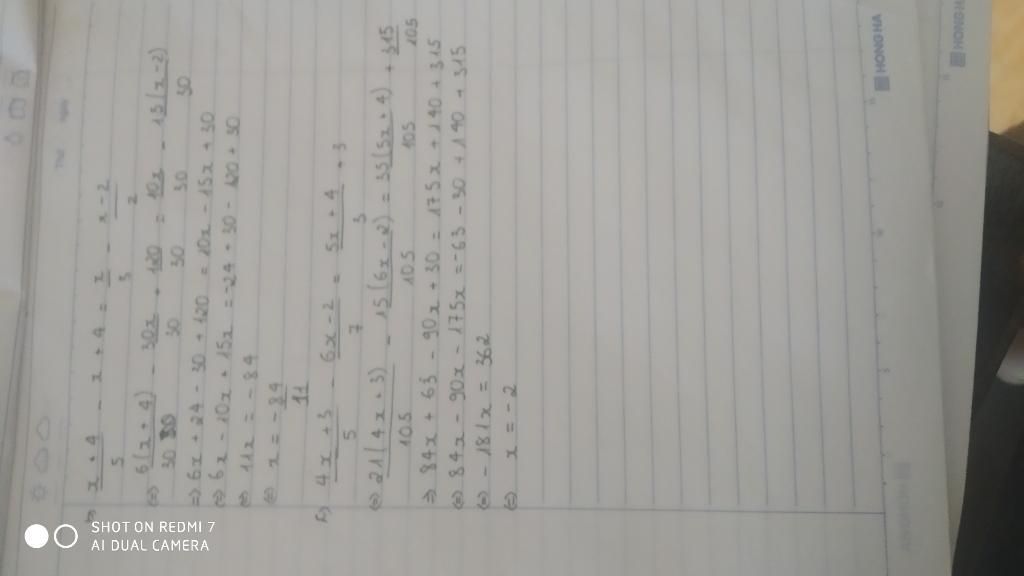 x + 4 / 5 - x + 4 = x / 3 - x - 2 / 2
(=) 6(x + 4) / 30 - 30x / 30 + 120 / 30 = 10x / 30 - 15(x - 2) / 30
=) 6x + 24 - 30 + 120 = 10x - 15x + 30
(=) 6x - 10x + 15x = -24 + 30 - 120 + 30
(=) 11x = - 84
(=) x = - 84 / 11
f) 4x + 3 / 5 - 6x - 2 / 7 = 5x + 4 / 3 + 3
(=) 21(4x + 3) / 105 - 15(6x - 2) / 105 = 35(5x + 4) / 105 + 315 / 105
=) 84x + 63 - 90x + 30 = 175x + 140 + 315
(=) 84x - 90x - 175x = -63 - 30 + 140 + 315
(=) - 181x = 362
(=) x = - 2
HONG HA
HONG HA
SHOT ON REDMI 7
AI DUAL CAMERA